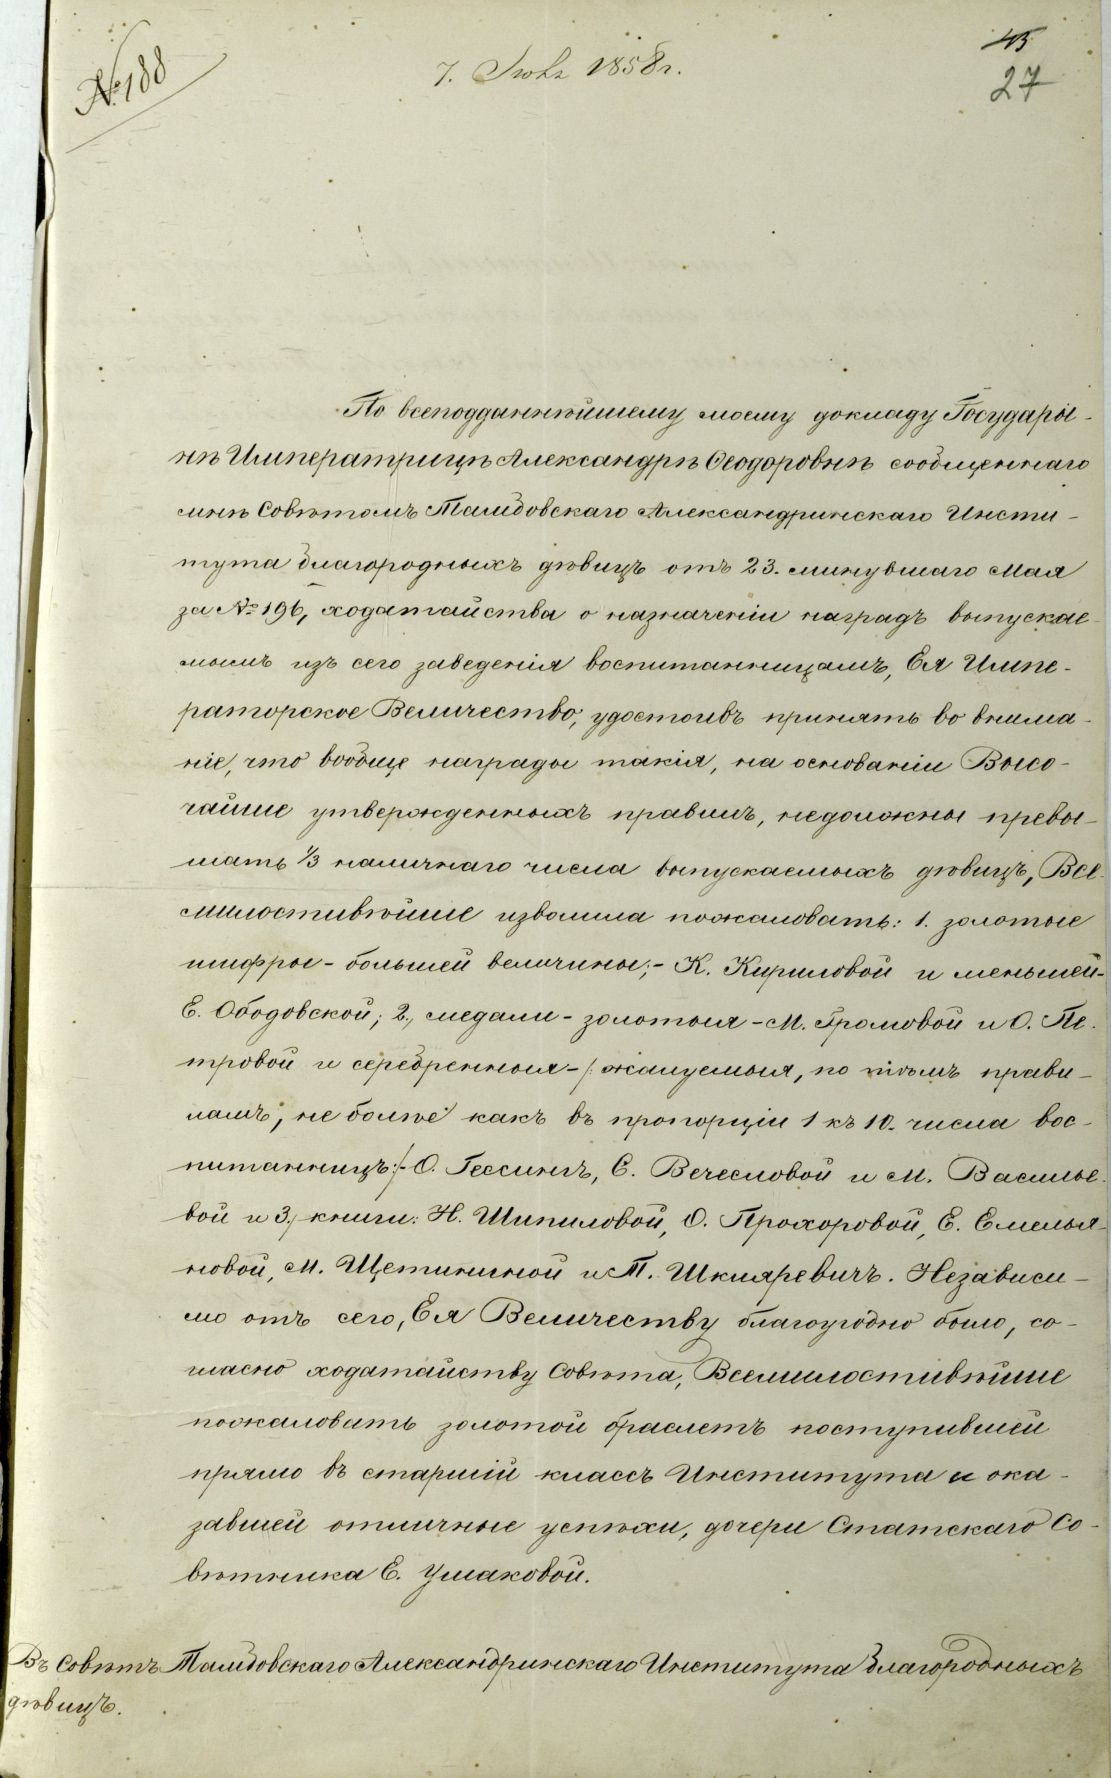 № 188
7. Іюня 1858 г.
45
27
По всеподданнѣйшему моему докладу Государы-
нѣ Императрицѣ Александрѣ Ѳеодоровнѣ сообщеннаго
мнѣ Совѣтомъ Тамбовскаго Александринскаго Инсти-
тута благородныхъ дѣвицъ отъ 23. минувшаго Мая
за № 196, ходатайства о назначеніи наградъ выпускае-
мымъ изъ сего заведенія воспитанницамъ, Ея Импе-
раторское Величество, удостоивъ принять во внима-
ніе, что вообще награды такія, на основаніи Высо-
чайше утвержденныхъ правилъ, недолжны превы-
шать 1/3 наличнаго числа выпускаемыхъ дѣвицъ, Все-
милостивѣйше изволила пожаловать: 1. золотые
шифры - большей величины; - К. Кириловой и меньшей -
Е. Ободовской; 2., медали - золотыя - М. Громовой и О. Пе-
тровой и серебренныя - /: жалуемыя, по тѣмъ прави-
ламъ, не болѣе какъ въ пропорціи 1 къ 10. числа вос-
питанницъ:/ - О. Гессингъ, С. Вечесловой и М. Василье-
вой и 3., книги: Н. Шипиловой, О. Прохоровой, Е. Емелья-
новой, М. Щетининой и Т. Шкляревичъ. Независи-
мо отъ сего, Ея Величеству благоугодно было, со-
гласно ходатайству Совѣта, Всемилостивѣйше
пожаловать золотой браслетъ поступившей
прямо въ старшій классъ Института и ока-
завшей отличные успѣхи, дочери Статскаго Со-
вѣтника Е. Ушаковой.
Въ Совѣтъ Тамбовскаго Александринскаго Института благородныхъ
дѣвицъ.